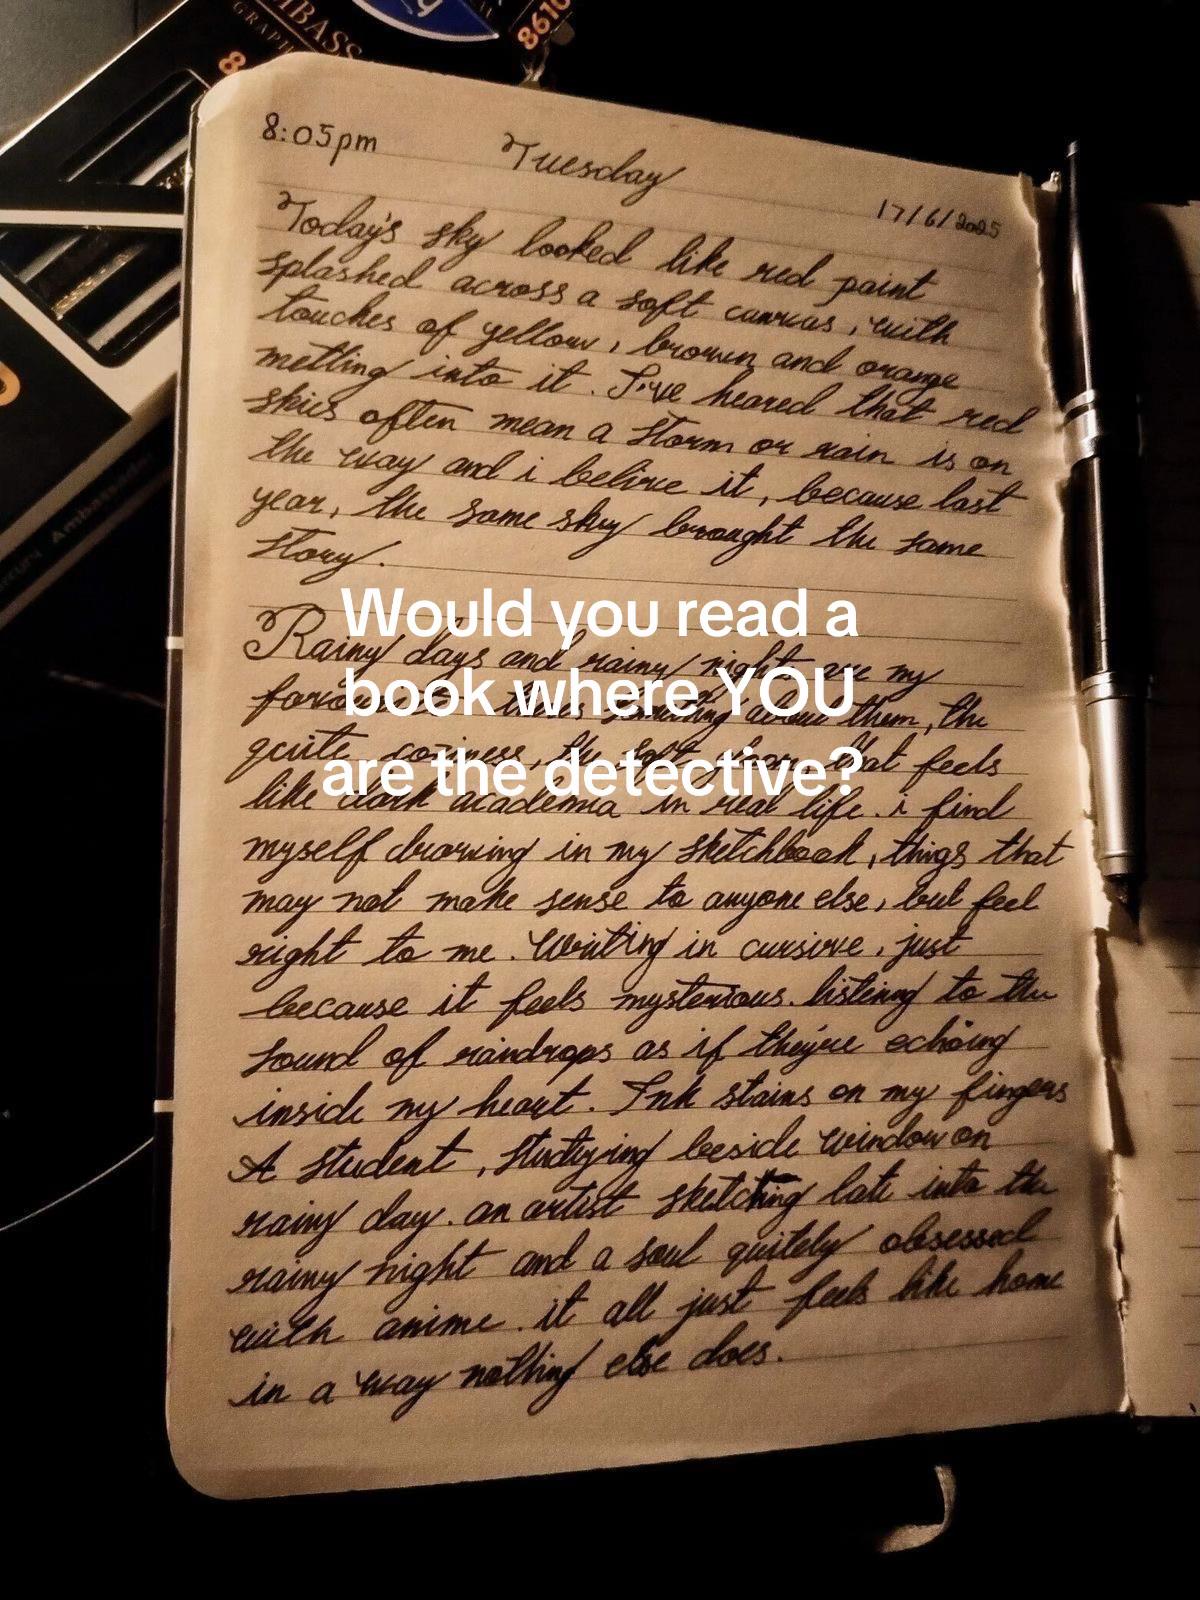 MBASS
GRAPH
8610
8
8:05pm
Tuesday
17/6/2025
Today's sky looked like red paint
splashed across a soft canvas, with
touches of yellow, brown and orange
melting into it. I've heared that red
skies often mean a storm or rain is on
the way and i belive it, because last
year, the same sky brought the same
story.
Would you read a
book where YOU
are the detective?
Rainy days and rainy night are my
something about them, the
quite coziness, the soft that feels
like dark academia in real life. i find
myself drawing in my sketchbook, things that
may not make sense to anyone else, but feel
right to me. Writing in cursive, just
because it feels mysterious. listening to the
sound of raindrops as if they're echoing
inside my heart. Ink stains on my fingers
A student, studying beside window on
rainy day. an artist sketching late into the
rainy night and a soul quitely obsessed
with anime. it all just feels like home
in a way nothing else does.